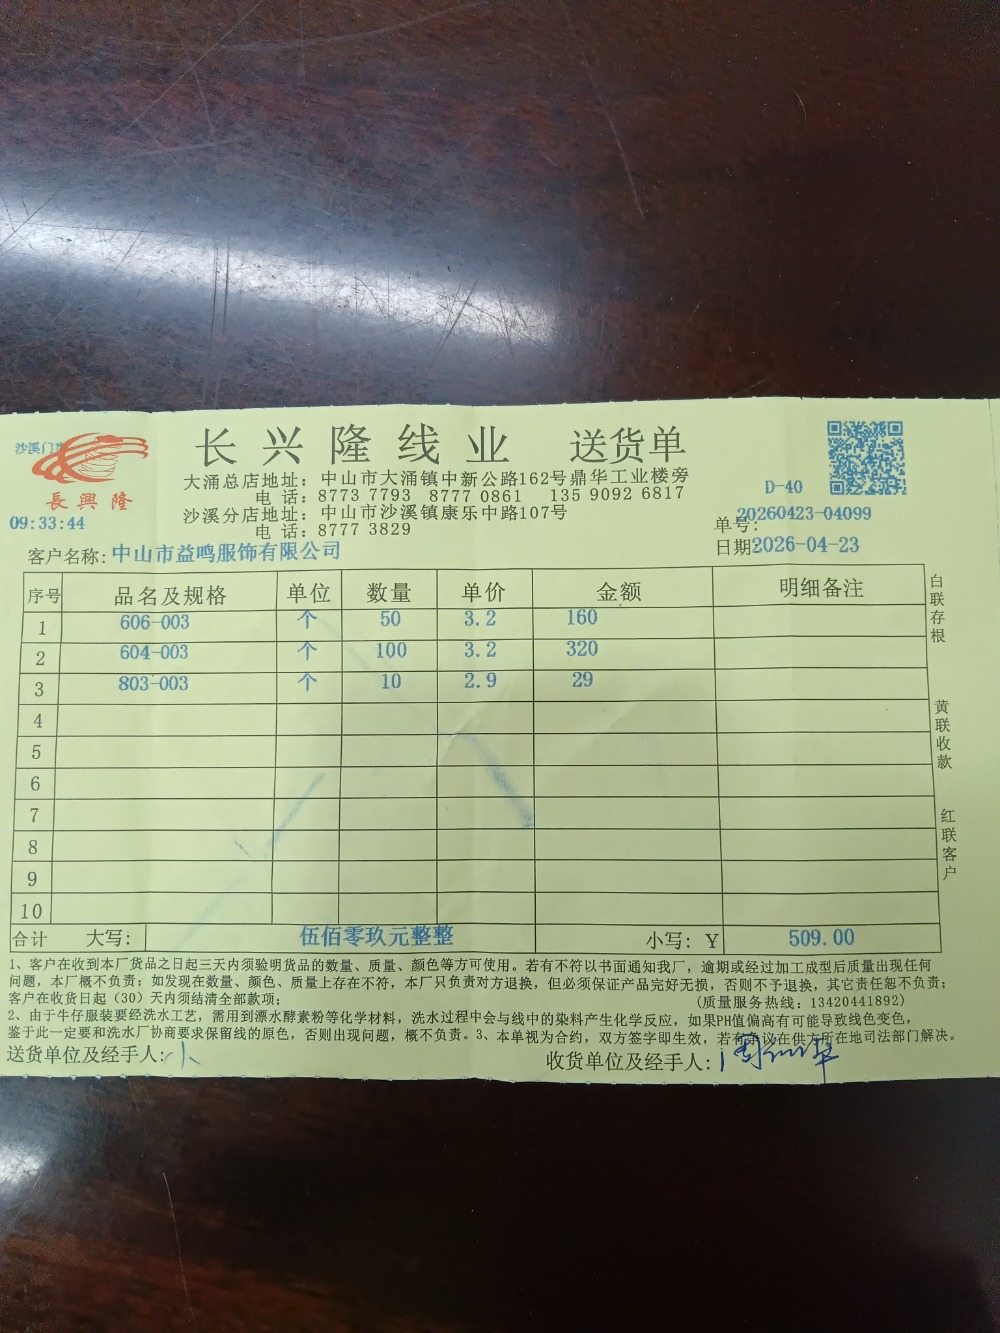 沙溪门市
長興隆
09:33:44
长兴隆线业 送货单
大涌总店地址：中山市大涌镇中新公路162号鼎华工业楼旁
电 话：8773 7793 8777 0861 135 9092 6817
沙溪分店地址：中山市沙溪镇康乐中路107号
电 话：8777 3829
D-40
单号：20260423-04099
日期2026-04-23
客户名称：中山市益鸣服饰有限公司
序号 品名及规格 单位 数量 单价 金额 明细备注
1 606-003 个 50 3.2 160
2 604-003 个 100 3.2 320
3 803-003 个 10 2.9 29
4
5
6
7
8
9
10
合计 大写：伍佰零玖元整整 小写：Y 509.00
白联存根
黄联收款
红联客户
1、客户在收到本厂货品之日起三天内须验明货品的数量、质量、颜色等方可使用。若有不符以书面通知我厂，逾期或经过加工成型后质量出现任何
问题，本厂概不负责；如发现在数量、颜色、质量上存在不符，本厂只负责对方退换，但必须保证产品完好无损，否则不予退换，其它责任恕不负责；
客户在收货日起（30）天内须结清全部款项； （质量服务热线：13420441892）
2、由于牛仔服装要经洗水工艺，需用到漂水酵素粉等化学材料，洗水过程中会与线中的染料产生化学反应，如果PH值偏高有可能导致线色变色，
鉴于此一定要和洗水厂协商要求保留线的原色，否则出现问题，概不负责。3、本单视为合约，双方签字即生效，若有争议在供方所在地司法部门解决。
送货单位及经手人：小
收货单位及经手人：